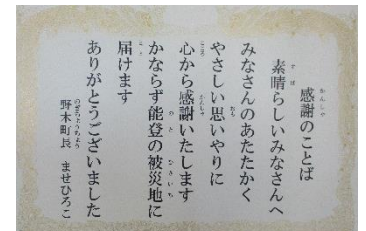 感謝のことば
素晴らしいみなさんへ
みなさんのあたたかく
やさしい思いやりに
心から感謝いたします
かならず能登の被災地に
届けます
ありがとうございました
野木町長 ませひろこ